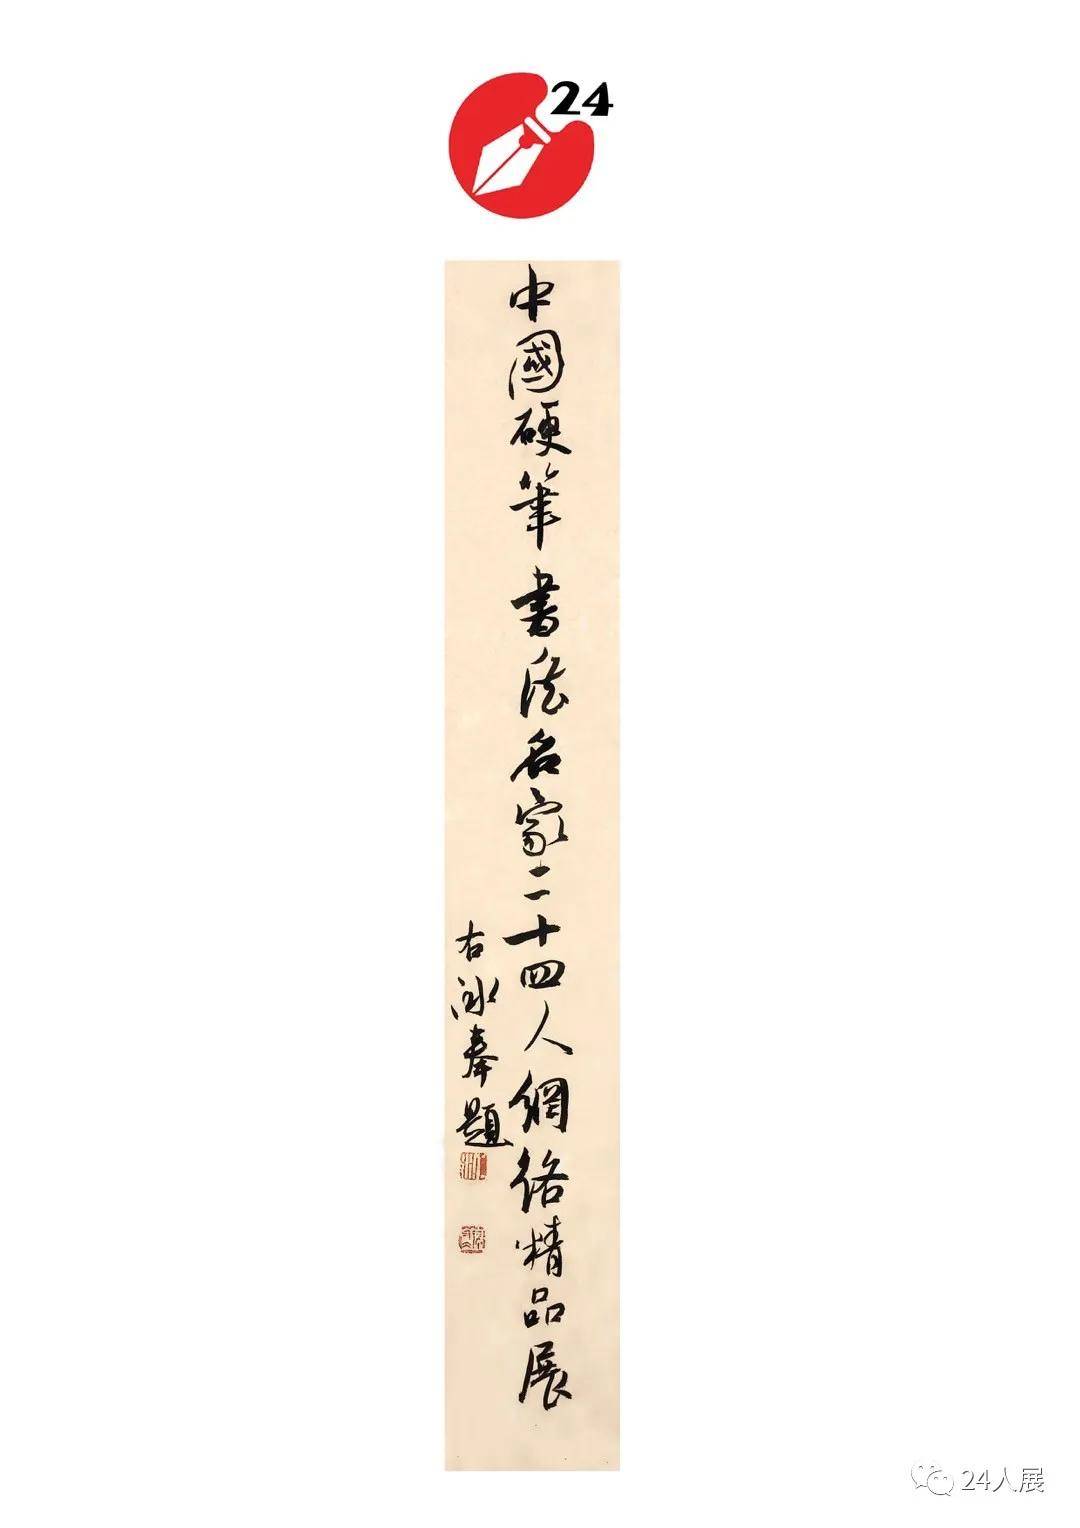 24
中國硬筆書法名家二十四人網絡精品展
右泳奉題
24人展